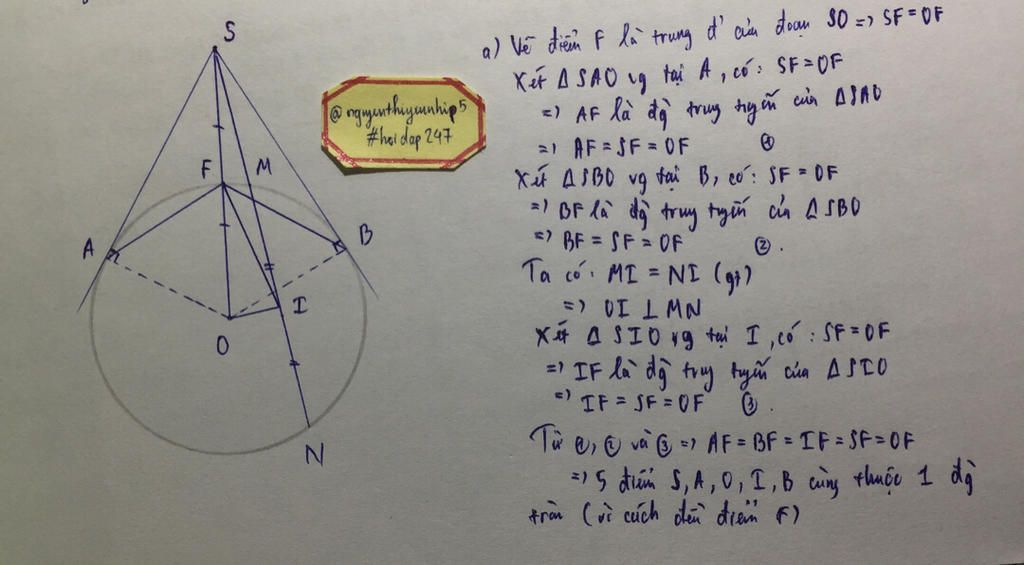 S
F
M
A
B
I
O
N
@nguyenthiyennhip5
#hoidap247
a) Vẽ điểm F là trung đ' của đoạn SO => SF = OF
Xét ΔSAO vg tại A, có: SF = OF
=> AF là đg truy tuyến của ΔSAO
=> AF = SF = OF ①
Xét ΔSBO vg tại B, có: SF = OF
=> BF là đg truy tuyến của ΔSBO
=> BF = SF = OF ②.
Ta có: MI = NI (gt)
=> OI ⊥ MN
Xét ΔSIO vg tại I, có: SF = OF
=> IF là đg truy tuyến của ΔSIO
=> IF = SF = OF ③.
Từ ①, ② và ③ => AF = BF = IF = SF = OF
=> 5 điểm S, A, O, I, B cùng thuộc 1 đg
tròn (vì cách đều điểm F)